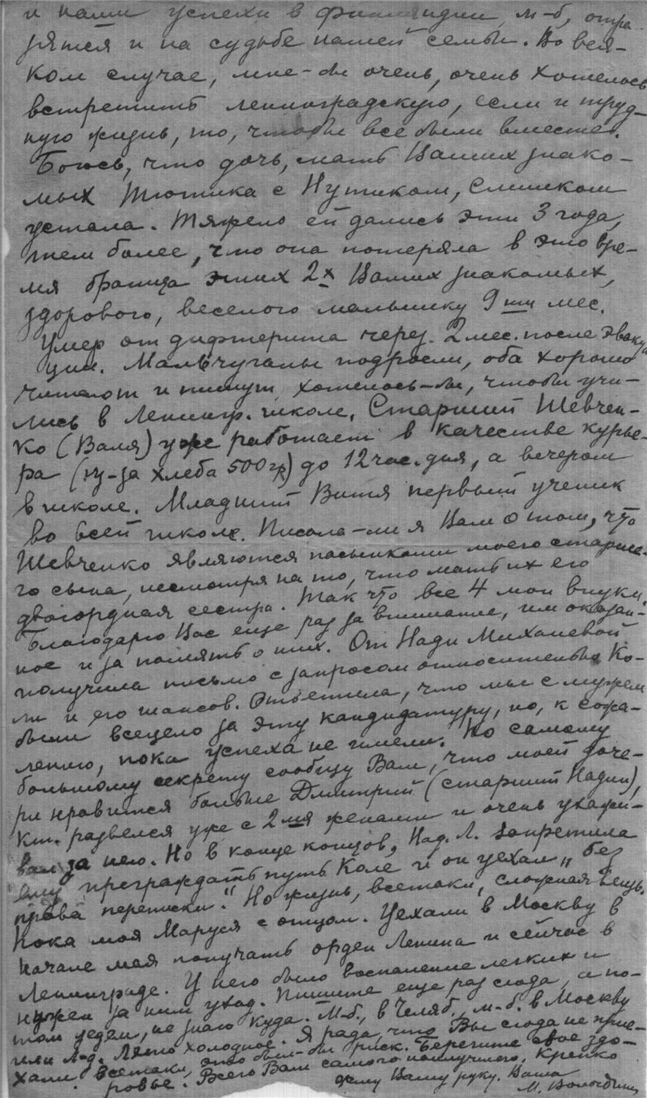 и наши успехи в Финляндии, м-б, отра
зятся и на судьбе нашей семьи. Во вся-
ком случае, мне-бы очень, очень хотелось
встретить ленинградскую, если и труд-
ную жизнь, то, чтобы все были вместе.
Боюсь, что дочь, мать Ваших знако-
мых Тютика с Нутиком, слишком
устала. Тяжело ей дались эти 3 года,
тем более, что она потеряла в это вре-
мя братца этих 2х Ваших знакомых,
здорового, веселого мальчишку 9ти мес.
Умер от дифтерита через 2 мес. после эваку
ции. Мальчуганы подросли, оба хорошо
читают и пишут, хотелось-бы, чтобы учи-
лись в Ленингр. школе. Старший Шевчен-
ко (Валя) уже работает в качестве курье-
ра (из-за хлеба 500 гр) до 12 час. дня, а вечером
в школе. Младший Витя первый ученик
во всей школе. Писала-ли я Вам о том, что
Шевченко являются пасынками моего старше-
го сына, несмотря на то, что мать их его
двоюродная сестра. Так что все 4 мои внуки.
Благодарю Вас еще раз за внимание, им оказан-
ное и за память о них. От Нади Михалевой
получила письмо с запросом относительно Ко-
ли и его шансов. Ответила, что мы с мужем
были всецело за эту кандидатуру, но, к сожа-
лению, пока успеха не имели. По самому
большому секрету сообщу Вам, что моей доче-
ри нравится больше Дмитрий (старший Надин),
кот. развелся уже с 2мя женами и очень ухажи-
вал за нею. Но в конце концов, Над. Л. запретила
ему преграждать путь Коле и он уехал "без
права переписки." Но жизнь, всетаки, сложная вещь.
Пока моя Маруся с отцом. Уехали в Москву в
начале мая получать орден Ленина и сейчас в
Ленинграде. У него было воспаление легких и
нужен за ним уход. Пишите еще раз сюда, а по-
том уедем, не знаю куда. М-б, в Челяб, м-б. в Москву
или Л-д. Лето холодное. Я рада, что Вы сюда не прие-
хали, всетаки, это был-бы риск. Берегите свое здо-
ровье. Всего Вам самого наилучшего. Крепко
жму Вашу руку. Ваша